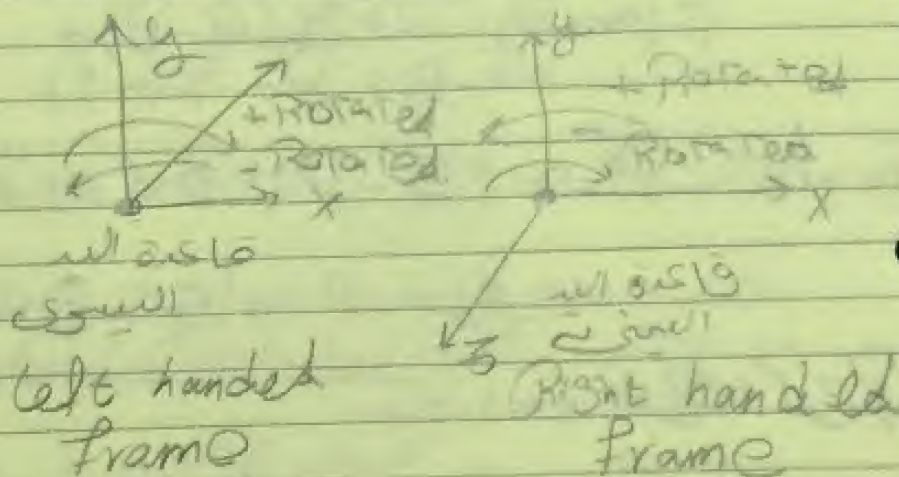 y
+ Rotated
- Rotated
X
قاعدة اليد
اليسرى
left handed
frame
y
+ Rotated
- Rotated
X
z
قاعدة اليد
اليمنى
Right handed
frame